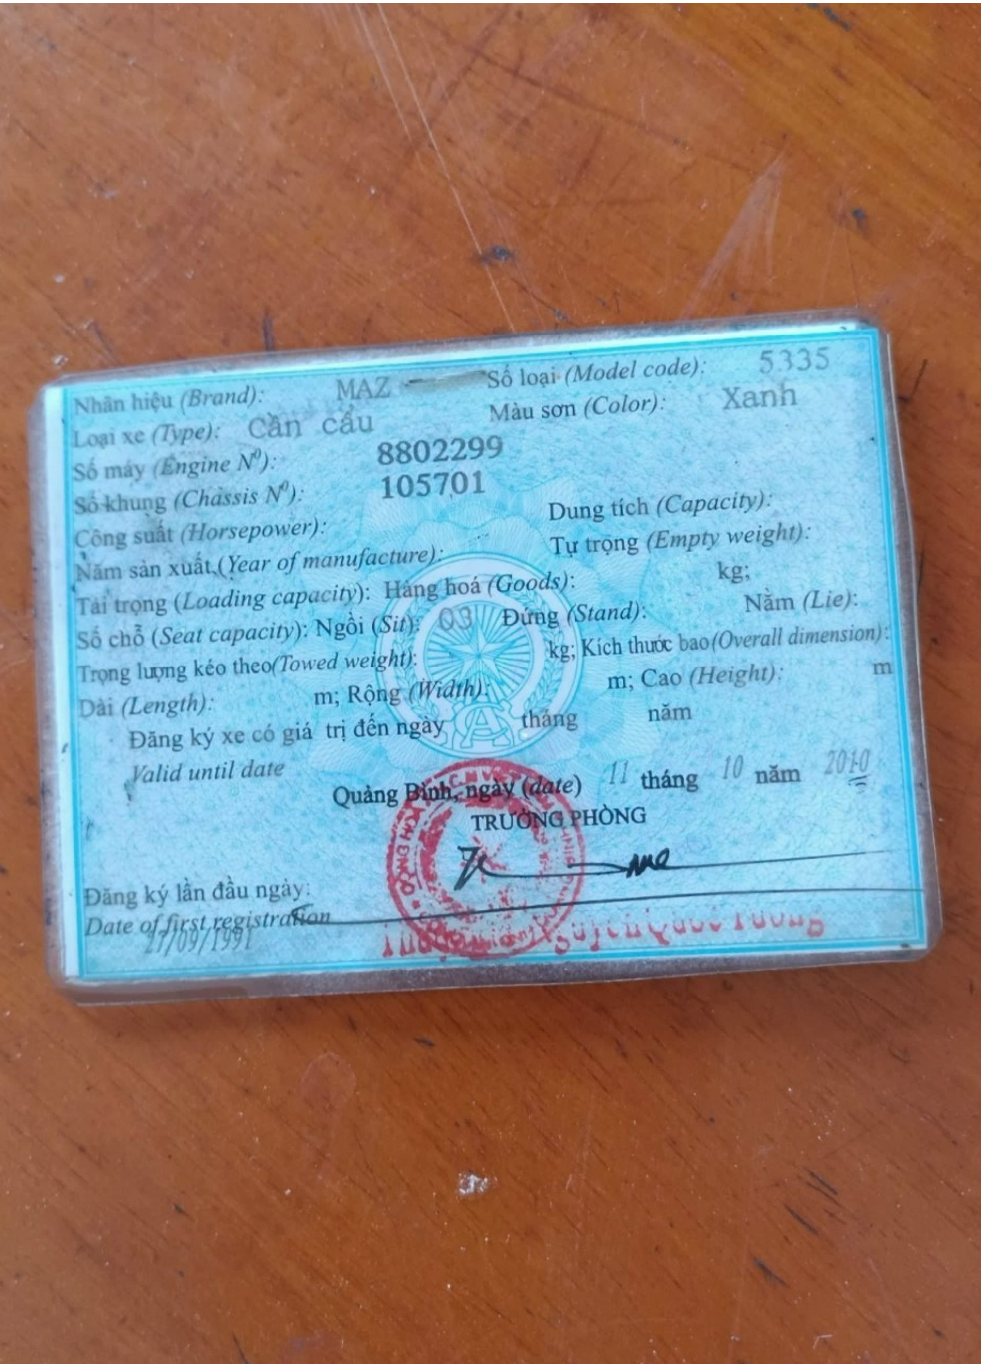 Nhãn hiệu (Brand): MAZ Số loại (Model code): 5335
Loại xe (Type): Cần cẩu Màu sơn (Color): Xanh
Số máy (Engine Nº): 8802299
Số khung (Chassis Nº): 105701
Công suất (Horsepower): Dung tích (Capacity):
Năm sản xuất (Year of manufacture): Tự trọng (Empty weight):
Tải trọng (Loading capacity): Hàng hoá (Goods): kg;
Số chỗ (Seat capacity): Ngồi (Sit): 03 Đứng (Stand): Nằm (Lie):
Trọng lượng kéo theo(Towed weight): kg; Kích thước bao(Overall dimension):
Dài (Length): m; Rộng (Width): m; Cao (Height): m
Đăng ký xe có giá trị đến ngày tháng năm
Valid until date
Quảng Bình, ngày (date) 11 tháng 10 năm 2010
TRƯỞNG PHÒNG
Đăng ký lần đầu ngày:
Date of first registration
27/09/1991
Nguyễn Quốc Tường